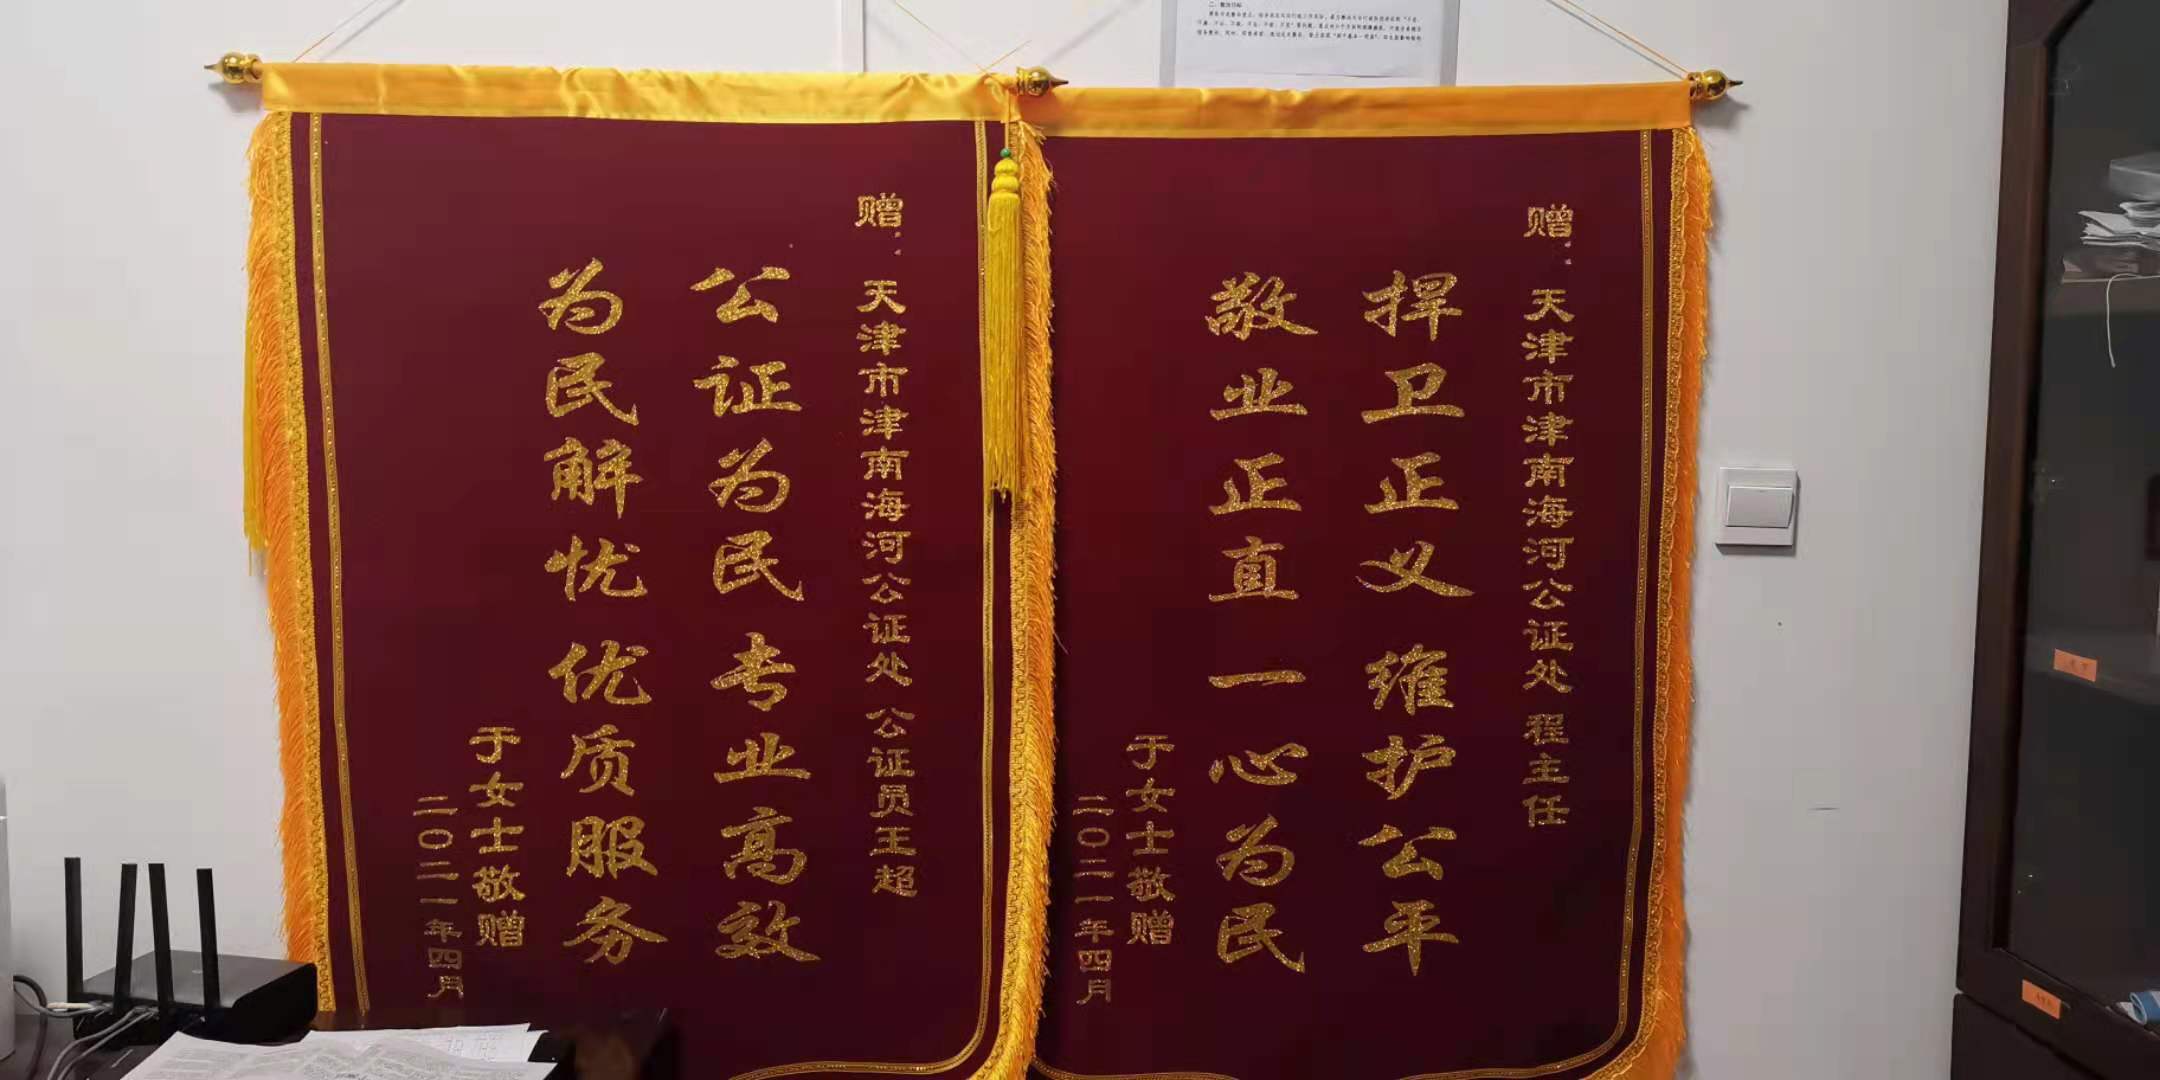 赠:天津市津南海河公证处 程主任
捍卫正义 维护公平
敬业正直 一心为民
于女士敬赠
二〇二一年四月
赠:天津市津南海河公证处 公证员王超
公证为民 专业高效
为民解忧 优质服务
于女士敬赠
二〇二一年四月